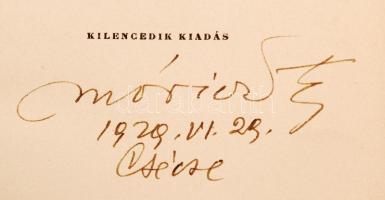 KILENCEDIK KIADÁS
Móricz Zs
1929. VI. 29.
Csécse